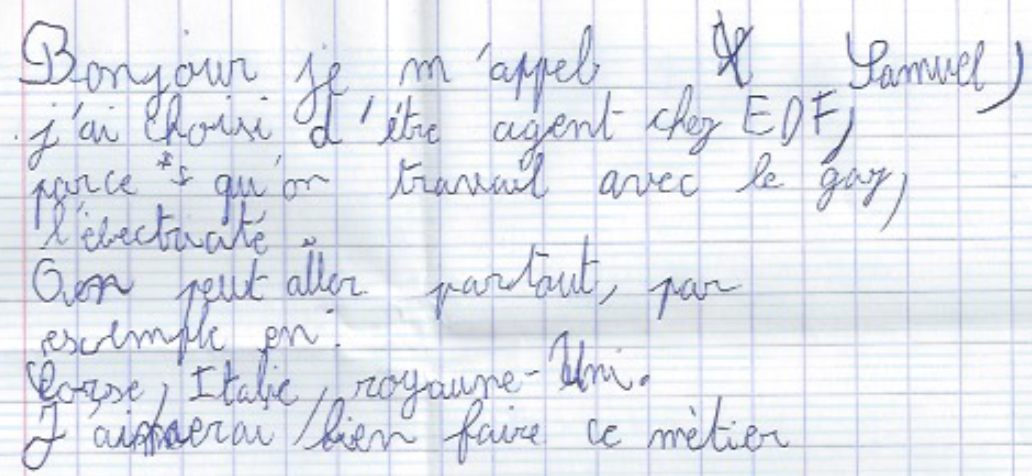 Bonjour je m'appel Samuel,
j'ai choisi d'être agent chez EDF,
parce qu'on travail avec le gaz,
l'électricité
On peut aller partout, par
exemple en :
Corse, Italie, royaume-Uni.
J'aimerai bien faire ce mètier